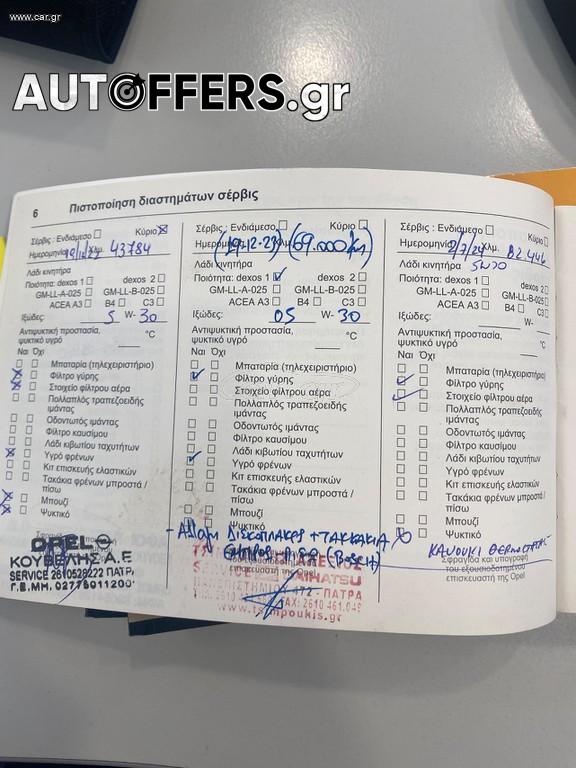 www.car.gr
AUTOFFERS.gr
6 Πιστοποίηση διαστημάτων σέρβις
Σέρβις: Ενδιάμεσο Κύριο
Ημερομηνία Χλμ. 43784
Λάδι κινητήρα
Ποιότητα: dexos 1 dexos 2
GM-LL-A-025 GM-LL-B-025
ACEA A3 B4 C3
Ιξώδες: 5 W- 30
Αντιψυκτική προστασία,
ψυκτικό υγρό °C
Ναι Όχι
Μπαταρία (τηλεχειριστήριο)
Φίλτρο γύρης
Στοιχείο φίλτρου αέρα
Πολλαπλός τραπεζοειδής
ιμάντας
Οδοντωτός ιμάντας
Φίλτρο καυσίμου
Λάδι κιβωτίου ταχυτήτων
Υγρό φρένων
Κιτ επισκευής ελαστικών
Τακάκια φρένων μπροστά /
πίσω
Μπουζί
Ψυκτικό
OPEL
ΚΟΥΒΕΛΗΣ Α.Ε
SERVICE 2610528222 ΠΑΤΡ.
Γ.Ε.ΜΗ. 02778011200
Σέρβις: Ενδιάμεσο Κύριο
Ημερομηνία (19-12-23) Χλμ. (69.000 km)
Λάδι κινητήρα
Ποιότητα: dexos 1 dexos 2
GM-LL-A-025 GM-LL-B-025
ACEA A3 B4 C3
Ιξώδες: 05 W- 30
Αντιψυκτική προστασία,
ψυκτικό υγρό °C
Ναι Όχι
Μπαταρία (τηλεχειριστήριο)
Φίλτρο γύρης
Στοιχείο φίλτρου αέρα
Πολλαπλός τραπεζοειδής
ιμάντας
Οδοντωτός ιμάντας
Φίλτρο καυσίμου
Λάδι κιβωτίου ταχυτήτων
Υγρό φρένων
Κιτ επισκευής ελαστικών
Τακάκια φρένων μπροστά /
πίσω
Μπουζί
Ψυκτικό
- Αλλαγή ΔΙΣΚΟΠΛΑΚΕΣ + ΤΑΚΑΚΙΑ
ΕΜΠΡΟΣ (BOSCH)
SERVICE DAIHATSU
ΠΑΝΕΠΙΣΤΗΜΙΟΥ 472 - ΠΑΤΡΑ
FAX: 2610 461.049
Σέρβις: Ενδιάμεσο Κύριο
Ημερομηνία 2/7/24 Χλμ. 82446
Λάδι κινητήρα 5W30
Ποιότητα: dexos 1 dexos 2
GM-LL-A-025 GM-LL-B-025
ACEA A3 B4 C3
Ιξώδες: W-
Αντιψυκτική προστασία,
ψυκτικό υγρό °C
Ναι Όχι
Μπαταρία (τηλεχειριστήριο)
Φίλτρο γύρης
Στοιχείο φίλτρου αέρα
Πολλαπλός τραπεζοειδής
ιμάντας
Οδοντωτός ιμάντας
Φίλτρο καυσίμου
Λάδι κιβωτίου ταχυτήτων
Υγρό φρένων
Κιτ επισκευής ελαστικών
Τακάκια φρένων μπροστά /
πίσω
Μπουζί
Ψυκτικό
ΚΑΠΟΥΚΙ
Σφραγίδα και υπογραφή
του εξουσιοδοτημένου
επισκευαστή της Opel